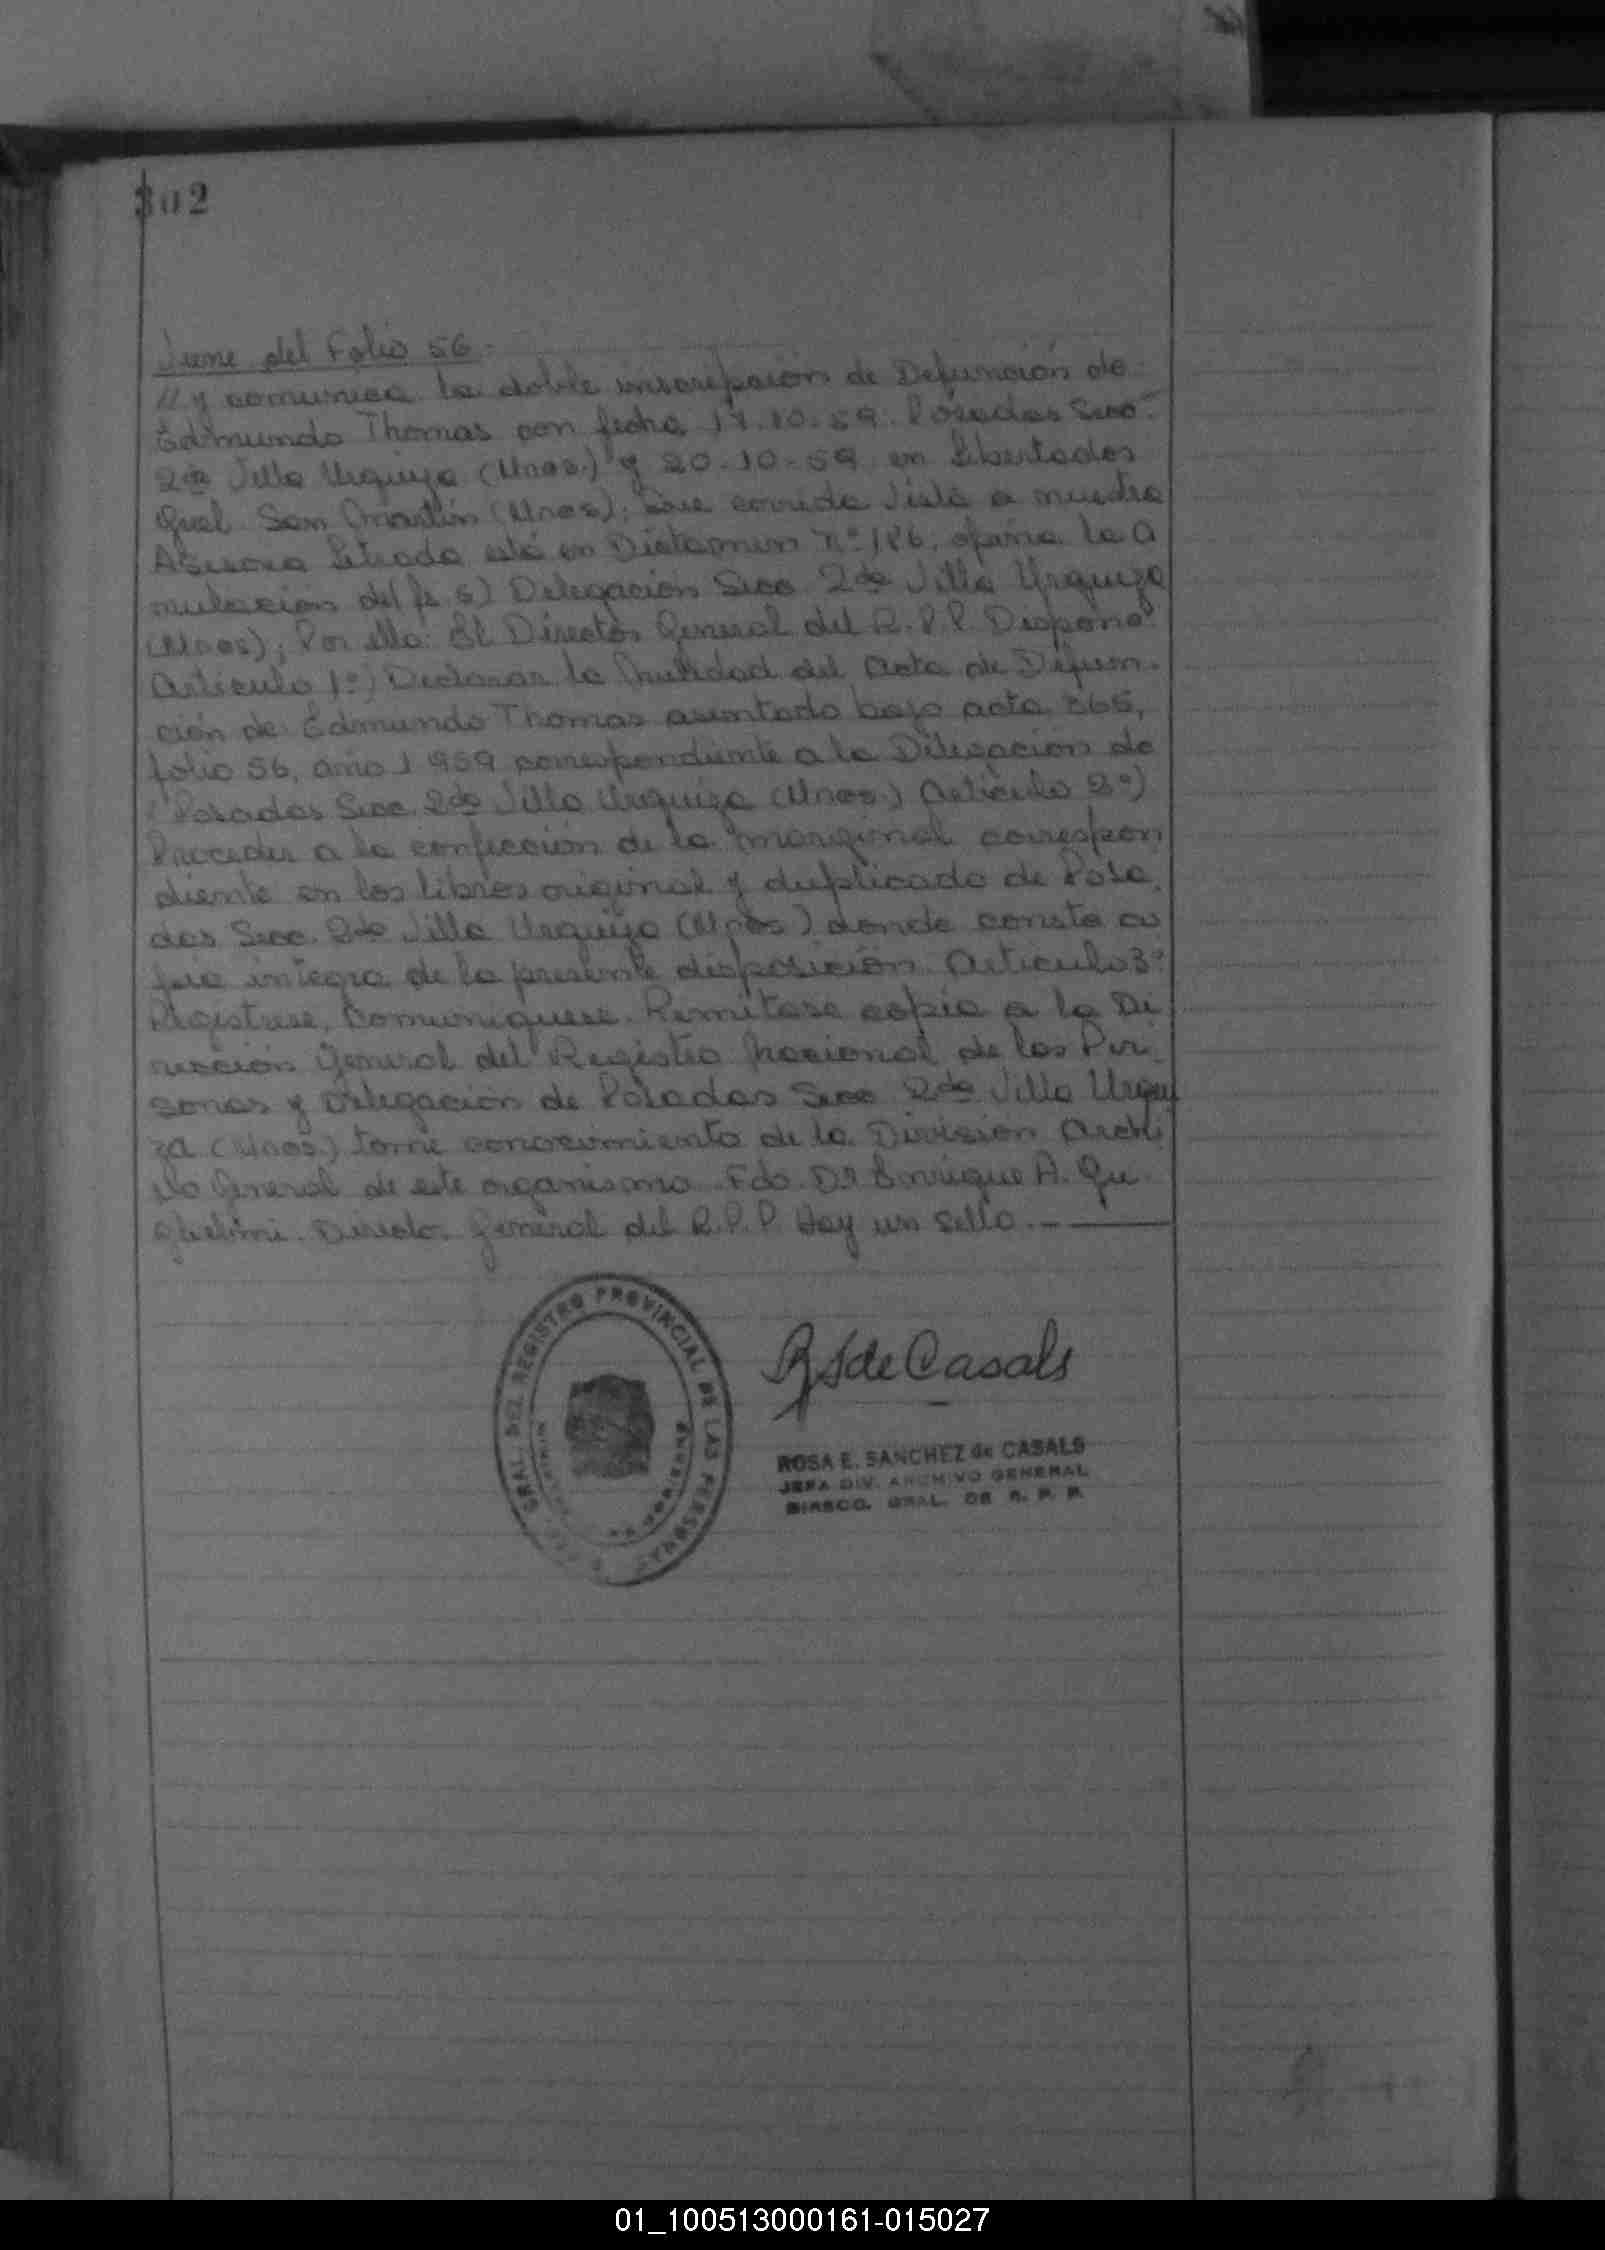 302
Viene del Folio 56.
// y comunica la doble inscripción de Defunción de
Edmundo Thomas con fecha 17.10.59. Posadas Secc.
2da Villa Urquiza (Mnes.) y 20.10.59 en Libertador
Gral San Martín (Mnes); Que corrida vista a nuestra
Asesora Letrada esta en Dictamen nº 186, opina la a
nulación del (fs 5) Delegación Secc 2da Villa Urquiza
(Mnes); Por ello: El Director General del R.P.P. Dispone:
Articulo 1º) Declarar la Nulidad del acta de Defun-
ción de Edmundo Thomas asentado bajo acta 365,
folio 56, año 1959 correspondiente a la Delegación de
Posadas Secc. 2da Villa Urquiza (Mnes.) Articulo 2º)
Proceder a la confección de la marginal correspon
diente en los libros original y duplicado de Posa
das Secc. 2da Villa Urquiza (Mnes) donde conste co
pia integra de la presente disposición. Articulo 3º
Registrese, Comuniquese. Remitase copia a la Di
rección General del Registro Nacional de las Per-
sonas y Delegación de Posadas Secc 2da Villa Urqui
za (Mnes.) tome conocimiento de la División Archi
vo General de este organismo. Fdo. Dr Enrique A. Gu
glielmi. Director General del R.P.P. Hay un sello.-
GRAL. DEL REGISTRO PROVINCIAL DE LAS PERSONAS
RS de Casals
ROSA E. SANCHEZ de CASALS
JEFA DIV. ARCHIVO GENERAL
DIRECC. GRAL. DE R. P. P.
01_100513000161-015027